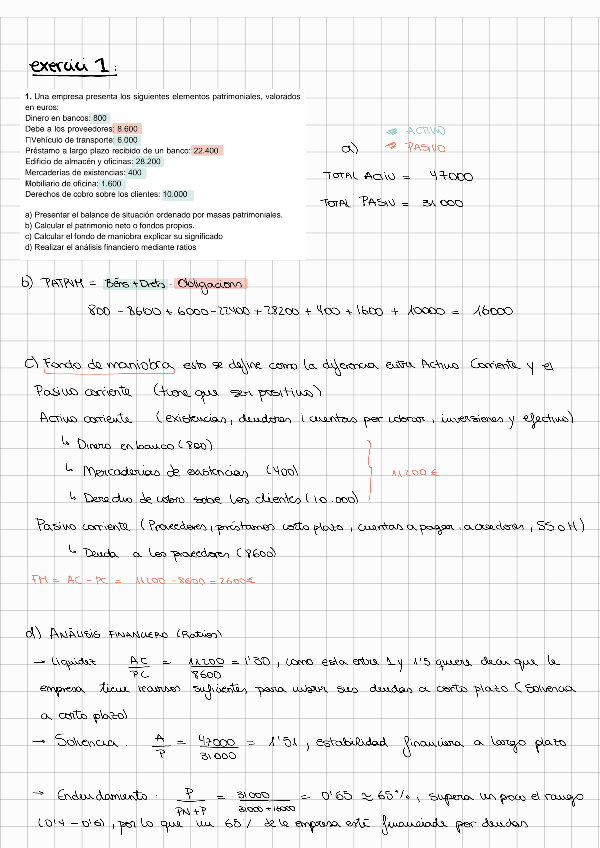 exercici 1:
1. Una empresa presenta los siguientes elementos patrimoniales, valorados
en euros:
Dinero en bancos: 800
Debe a los proveedores: 8.600
Vehículo de transporte: 6.000
Préstamo a largo plazo recibido de un banco: 22.400
Edificio de almacén y oficinas: 28.200
Mercaderías de existencias: 400
Mobiliario de oficina: 1.600
Derechos de cobro sobre los clientes: 10.000
a) Presentar el balance de situación ordenado por masas patrimoniales.
b) Calcular el patrimonio neto o fondos propios.
c) Calcular el fondo de maniobra explicar su significado
d) Realizar el análisis financiero mediante ratios
→ ACTIVO
a) → PASIVO
TOTAL ACTIU = 47000
TOTAL PASIU = 31000
b) PATRIM = Béns + Drets - Obligacions
800 - 8600 + 6000 - 22400 + 28200 + 400 + 1600 + 10000 = 16000
c) Fondo de maniobra, esto se define como la diferencia entre Activo Corriente y el
Pasivo corriente (tiene que ser positivo)
Activo corriente (existencias, deudores i cuentas por cobrar, inversiones y efectivo)
↳ Dinero en banco (800)
↳ Mercaderías de existencias (400)
↳ Derecho de cobro sobre los clientes (10.000)
11200€
Pasivo corriente (Proveedores, préstamos corto plazo, cuentas a pagar, acreedores, SS o H)
↳ Deuda a los proveedores (8600)
FM = AC - PC = 11200 - 8600 = 2600€
d) ANÁLISIS FINANCIERO (Ratios)
→ Liquidez AC/PC = 11200/8600 = 1'30, como esta entre 1 y 1'5 quiere decir que la
empresa tiene recursos suficientes para cubrir sus deudas a corto plazo (solvencia
a corto plazo)
→ Solvencia: A/P = 47000/31000 = 1'51, estabilidad financiera a largo plazo
→ Endeudamiento: P/PN+P = 31000/31000+16000 = 0'65 ≈ 65%, supera un poco el rango
(0'4 - 0'6), por lo que un 65% de la empresa esté financiada por deudas